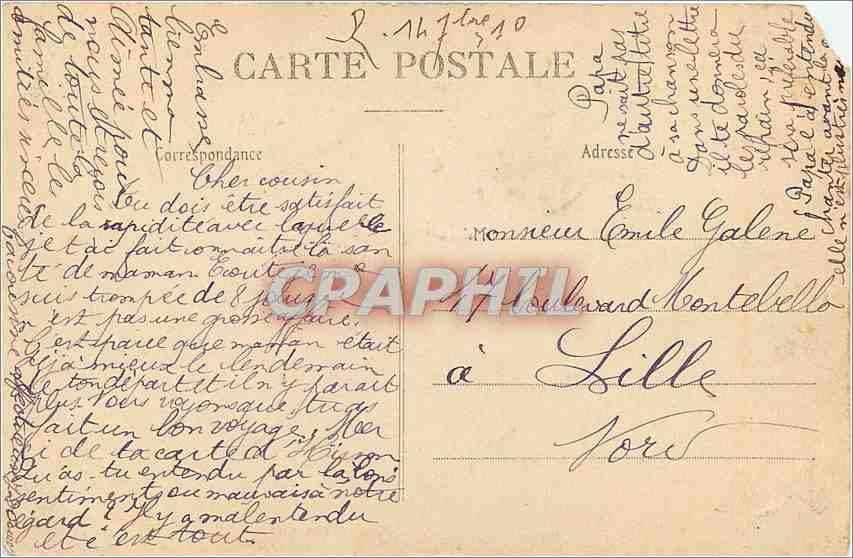 14 7bre 10
CARTE POSTALE
Correspondance
Adresse
Cher cousin
Tu dois être satisfait
de la rapidité avec laquelle
je t'ai fait connaître la san
té de maman. Ecoute, je me
suis trompée de 8 jours
est pas une grosse affaire.
C'est parce que maman était
déjà mieux le lendemain
de ton départ et il n'y parait
plus. Nous voyons que tu as
fait un bon voyage. Mer
ci de ta carte d'Hirson
Qu'as-tu entendu par la bons
sentiments ou mauvais à notre
égard? Il y a malentendu
et c'est tout.
Embrasse
bien mo
tante et
Aimée pour
nous et reçois
de toute la
famille le
Papa
ne sait pas
d'autre titre
à sa chanson
Dans une lettre
il te donnera
les paroles du
refrain; ça
sera préférable
Papa l'a entendu
chanter avant la
elle n'est plus
Monsieur Emile Galene
17 boulevard Montebello
à Lille
Nord
CPAPHIL